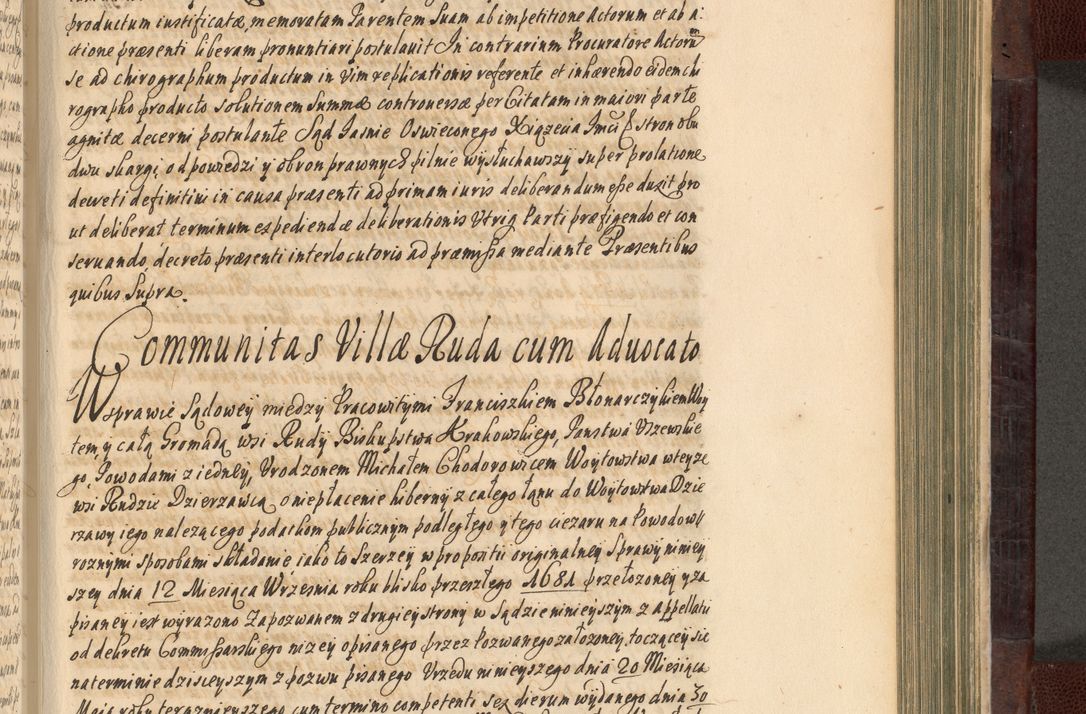 productum iustificatæ, memoratam Parentem Suam ab impetitione Actorum et ab a:
ctione præsenti liberam pronuntiari postulauit In contrarium Procuratore Actorum
se ad chirographum productum in vim replicationis referente et inhærendo eidem chi
rographo producto solutionem Summæ controuersæ per Citatam in maiori parte
agnitæ decerni postulante Sąd Jasnie Oswieconego Xiązecia Imci stron obu
dwu skargi, odpowiedzi y obron prawnych pilnie wysłuchawszy super prolatione
decreti definitiui in causa præsenti ad primam iuris deliberandum esse duxit pro
ut deliberat terminum expediendæ deliberationis Vtriq Parti præfigendo et con
seruando, decreto præsenti interlocutorio ad præmissa mediante Præsentibus
quibus Supra.
Communitas Villæ Ruda cum Aduocato
W sprawie Sądowey między Pracowitymi Franciszkiem Błonarczykiem Woy
tem, y całą Gromadą wsi Rudy Biskupstwa Krakowskiego, Panstwa Uszewskie
go, Powodami z iedney, Vrodzonem Michałem Chodorowicem Woytowstwa wteyze
wsi Rudzie Dzierzawcą o niepłacenie hiberny z całego łąnu do Woytowstwa Dzie
rzawy iego nalezącego podatkom publicznym podległego y tego ciezaru na Powodow
roznymi sposobami składanie iako to szerzey w propositii originalney sprawy niniey
szey dnia 12 Miesiąca Wrzesnia roku blisko przeszłego 1681 przełozoney y za
pisaney iest wyrazono Zapozwanem z drugiey strony w Sądzie ninieyszym z appellatii
od dekretu Commissarskiego nizey opisanego przez Pozwanego załozoney, toczącey się
na terminie dzisieyszym z pozwu pisanego Vrzedu ninieyszego dnia 20 Miesiąca
Maja roku terazmieyszego cum termino competenti sex dierum wydanego dnia 30